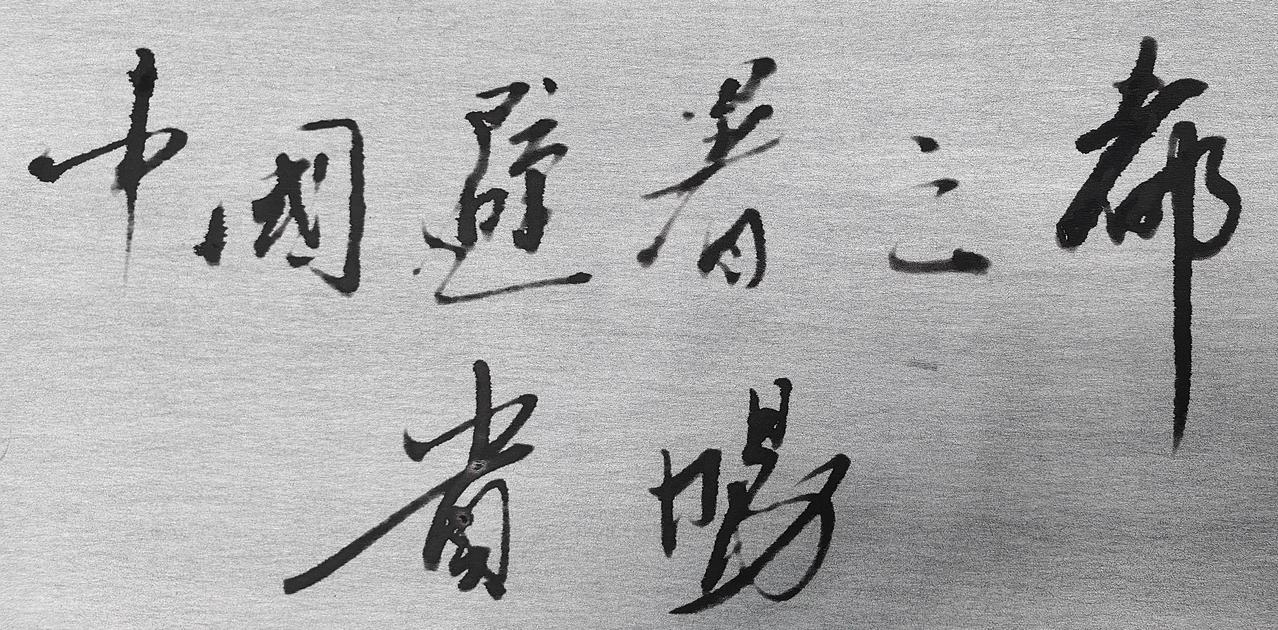 中國避暑之都
貴陽